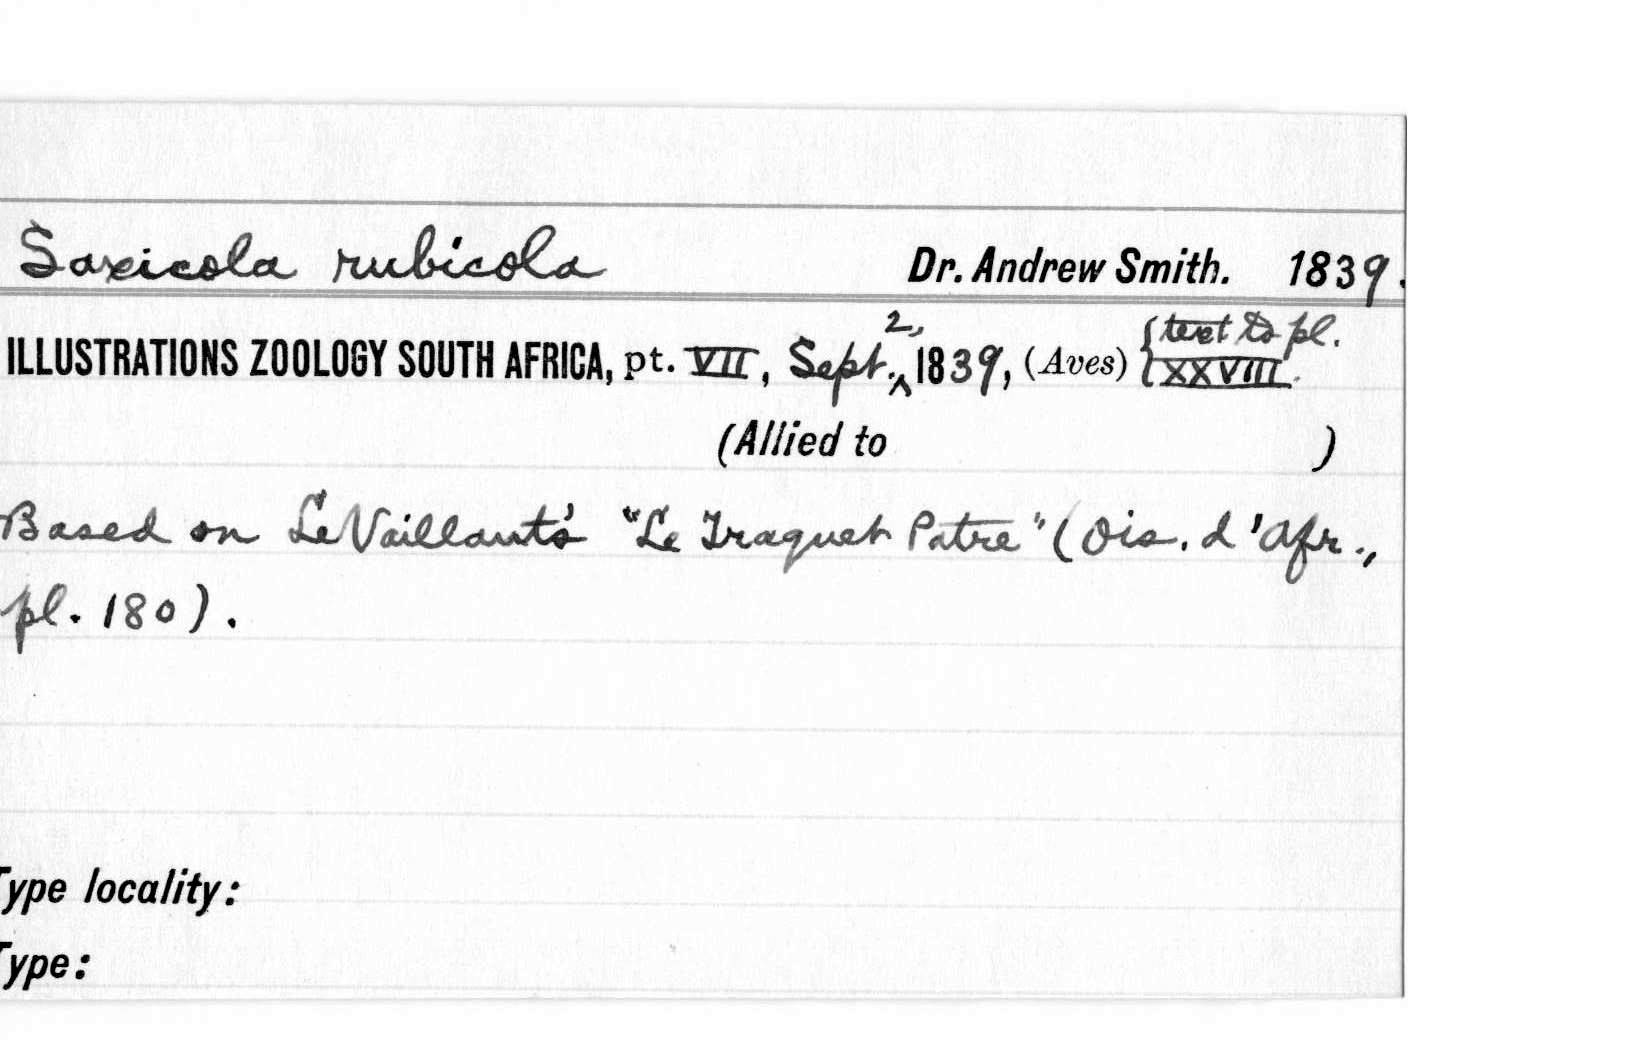 Saxicola rubicola Dr. Andrew Smith. 1839.
ILLUSTRATIONS ZOOLOGY SOUTH AFRICA, pt. VII, Sept. 2, 1839, (Aves) {text to pl. XXVIII.
(Allied to )
Based on LeVaillant's "Le Traquet Patre" (Ois. d'Afr.,
pl. 180).
Type locality:
Type: